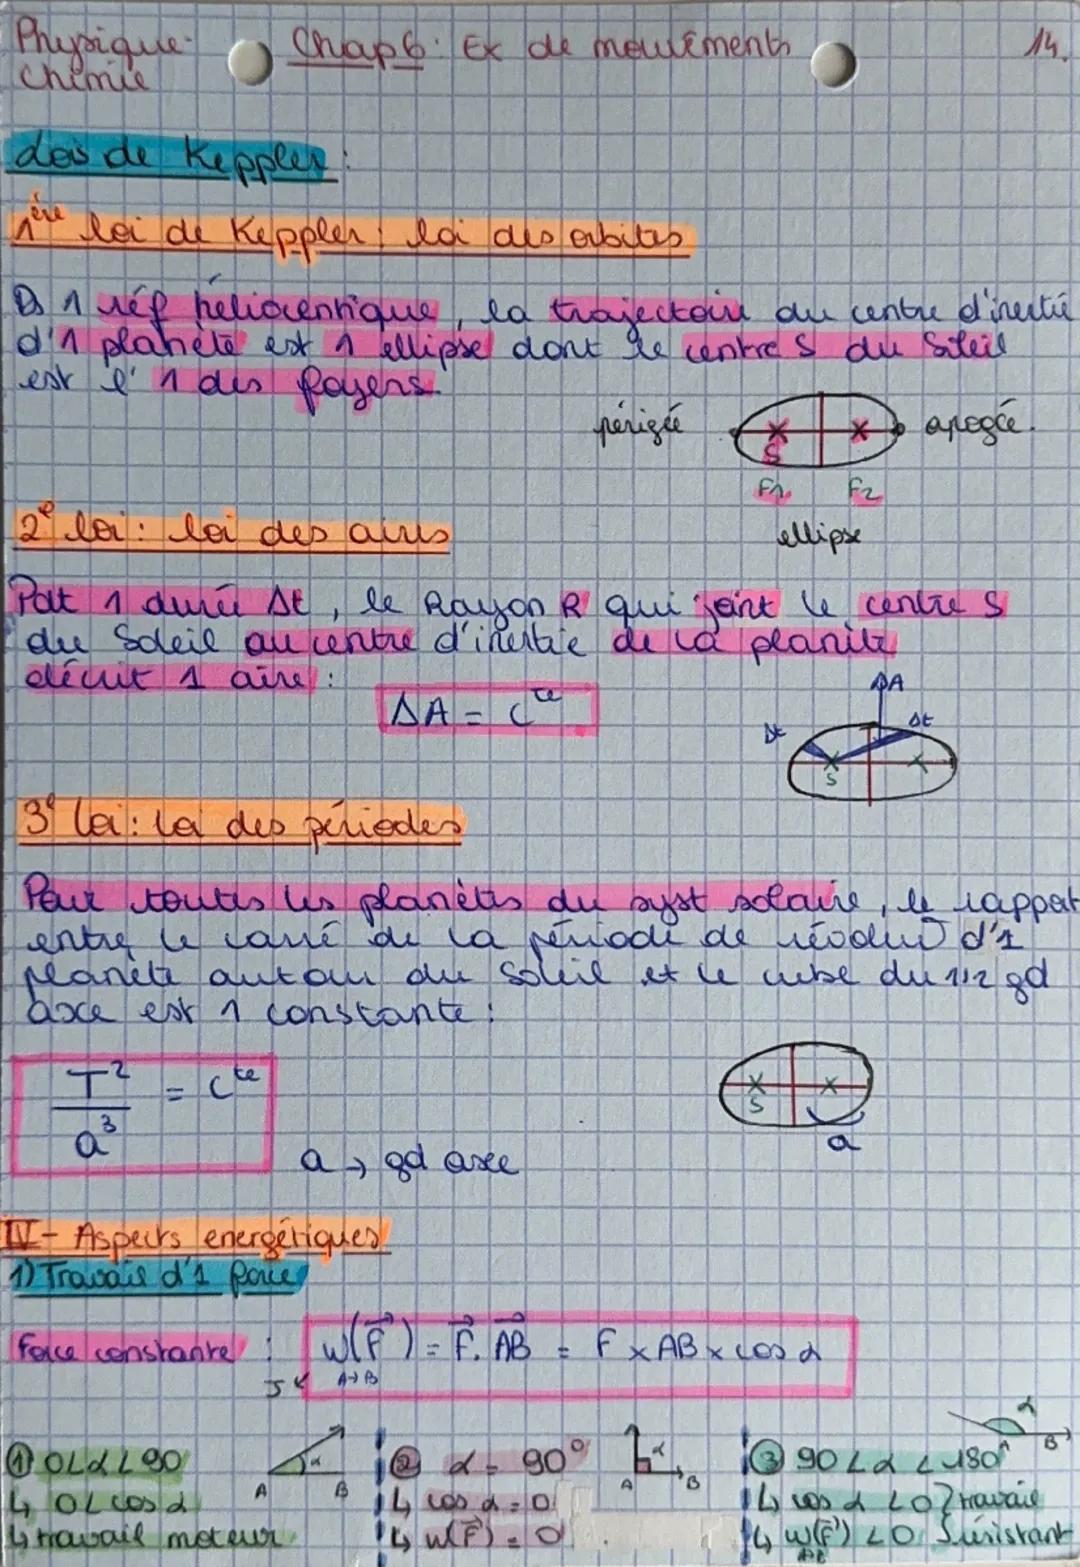 Physique-
Chimie
Chap 6: Ex de mouvements
14.
Lois de Keppler:
1ère loi de Keppler: loi des orbites
Ds 1 réf héliocentrique, la trajectoire du centre d'inertie
d'1 planète est 1 ellipse dont le centre S du Soleil
est l'1 des foyers.
périgée
apogée.
S
F1
F2
ellipse
2e loi: loi des aires
Pdt 1 durée Δt, le Rayon R qui joint le centre S
du Soleil au centre d'inertie de la planète
décrit 1 aire:
ΔA = Cte
A
Δt
Δt
S
3e loi: loi des périodes
Pour toutes les planètes du syst solaire, le rapport
entre le carré de la période de révolu° d'1
planète autour du soleil et le cube du 1/2 gd
axe est 1 constante:
T²/a³ = Cte
S
a
a → gd axe
IV- Aspects energétiques
1) Travail d'1 force
Force constante: W(F⃗) = F⃗. AB⃗ = F x AB x cos α
J
A→B
① 0<α<90
α
A
B
↳ 0< cos α
↳ travail moteur
② α = 90°
α
A
B
↳ cos α = 0
↳ W(F⃗) = 0
③ 90<α<180°
α
B
↳ cos α <0 } travail
↳ W(F⃗) <0 } résistant
AB